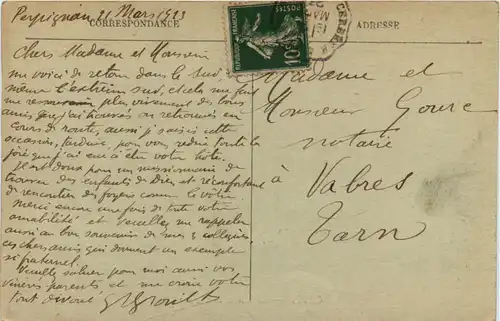 Perpignan 21 Mars 1923
CORRESPONDANCE
ADRESSE
RÉPUBLIQUE FRANÇAISE
POSTES
10
CERBÈRE
Chers Madame et Monsieur
me voici de retour dans le sud,
même l'extrême sud, et cela me fait
me plus vivement des bons
amis que j'ai trouvés ou retrouvés en
cours de route, aussi je saisis cette
occasion, pour vous redire toute la
joie que j'ai eue à être votre hôte.
Il est doux pour un missionnaire de
trouver des enfants de Dieu et réconfortant
de rencontrer des foyers comme le vôtre
Merci encore une fois de toute votre
amabilité et veuillez me rappeler
aussi au bon souvenir de vos collègues
ces chers amis qui donnent un exemple
si fraternel.
Veuillez saluer pour moi aussi vos
parents et me croire votre
tout dévoué
Madame et
Monsieur Goure
notaire
à Vabres
Tarn